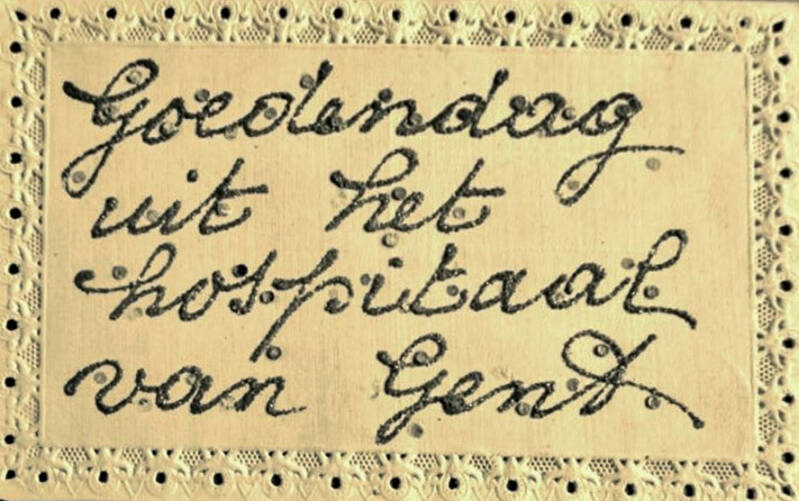 Goedendag
uit het
hospitaal
van Gent